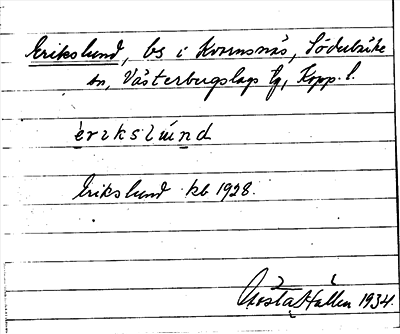 Erikslund, bs i Kvarnsnäs, Söderbärke
sn, Västerbergslags tg, Kopp. l.
èrıkslùnd
Erikslund kb 1928.
Gösta Hallen 1934.